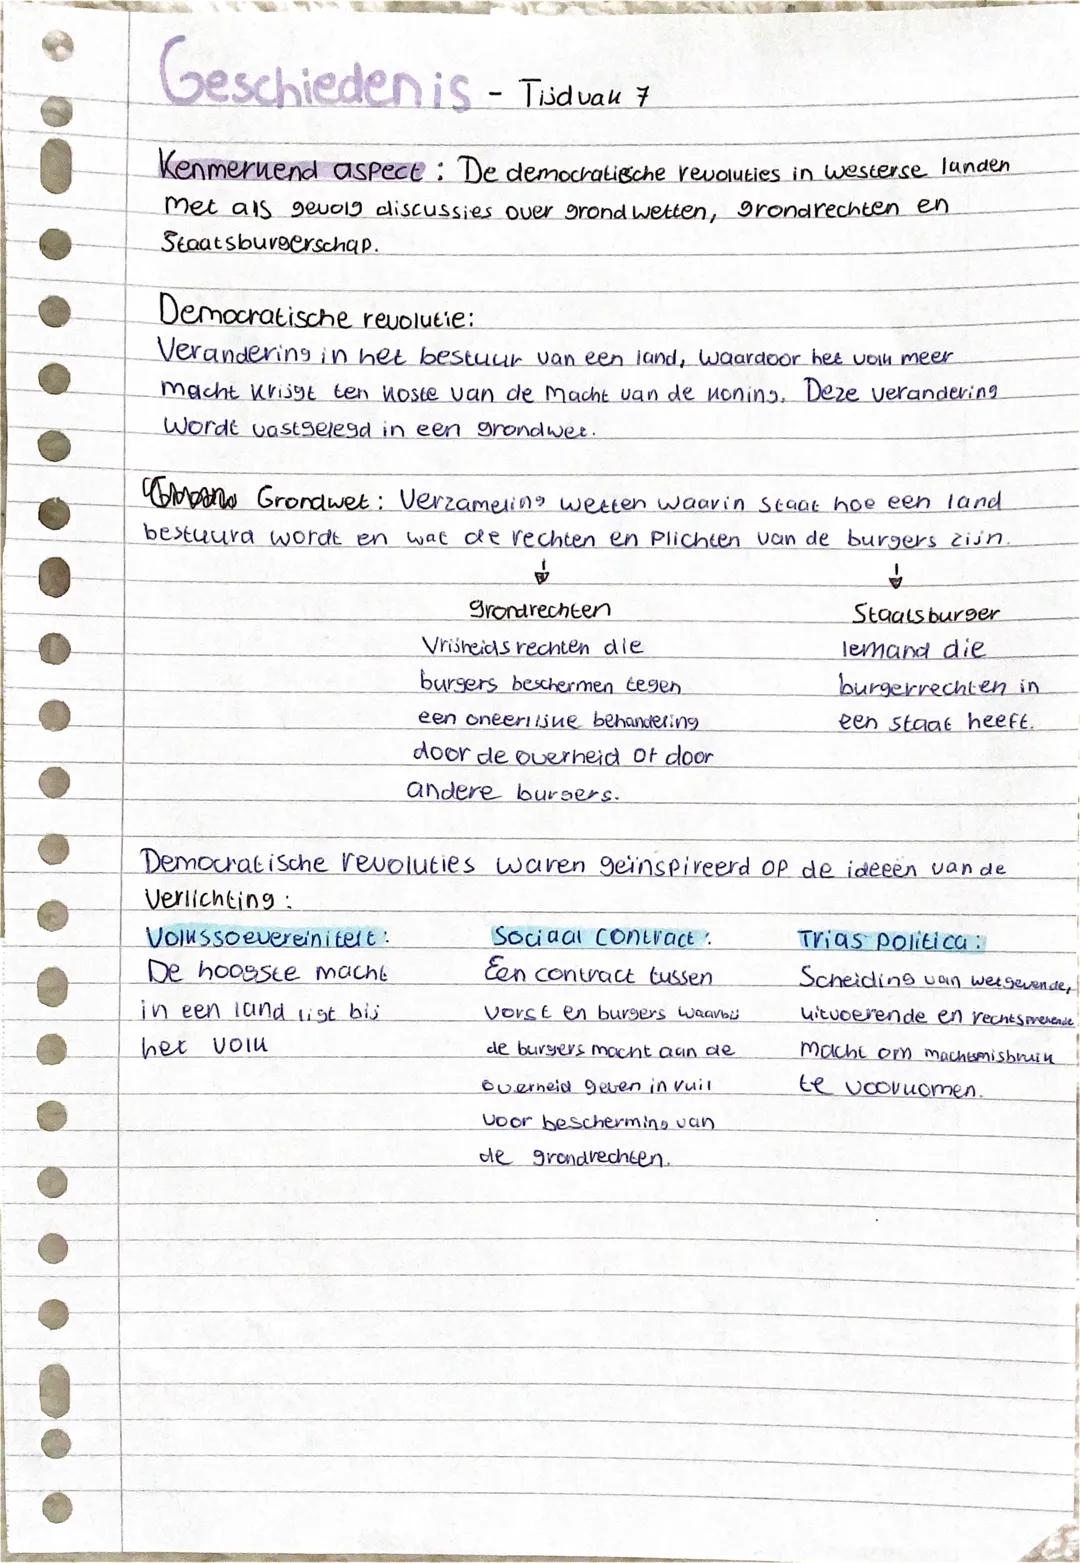 Geschiedenis - Tijdvak 7
Kenmerkend aspect : De democratische revoluties in westerse landen
met als gevolg discussies over grondwetten, grondrechten en
Staatsburgerschap.
Democratische revolutie:
Verandering in het bestuur van een land, waardoor het volk meer
macht krijgt ten koste van de macht van de koning. Deze verandering
wordt vastgelegd in een grondwet.
Grondwet : Verzameling wetten waarin staat hoe een land
bestuurd wordt en wat de rechten en plichten van de burgers zijn.
grondrechten
Vrijheidsrechten die
burgers beschermen tegen
een oneerlijke behandeling
door de overheid of door
andere burgers.
Staatsburger
Iemand die
burgerrechten in
een staat heeft.
Democratische revoluties waren geïnspireerd op de ideeën van de
Verlichting :
Volkssoevereiniteit :
De hoogste macht
in een land ligt bij
het volk
Sociaal contract :
Een contract tussen
vorst en burgers waarbij
de burgers macht aan de
overheid geven in ruil
voor bescherming van
de grondrechten.
Trias politica :
Scheiding van wetgevende,
uitvoerende en rechtsprekende
macht om machtsmisbruik
te voorkomen.